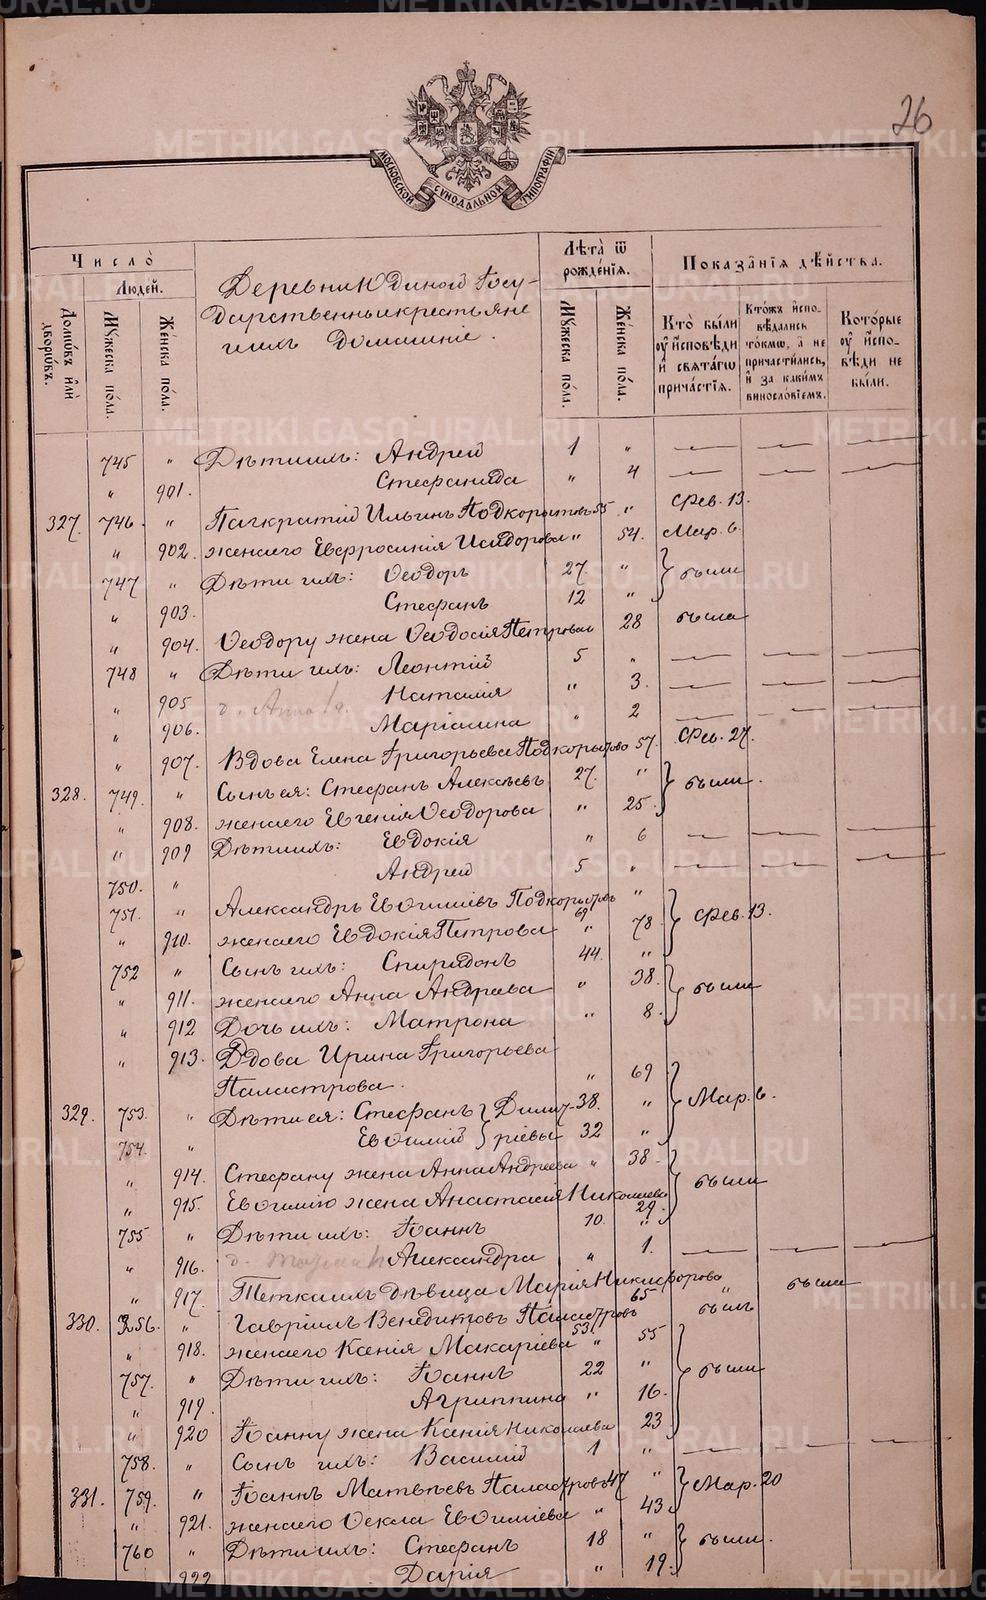 26
МОСКОВСКОЙ СѴНОДАЛЬНОЙ ТИПОГРАФІИ
Число̀
Людей.
Домѡ́въ и҆лѝ дворѡ́въ.
Мꙋ́жеска по́ла.
Же́нска по́ла.
Деревни Юдиной Госу-
дарственны крестьяне
и ихъ домашніе.
Лѣ́та ѿ рожде́нїѧ.
Мꙋ́жеска по́ла.
Же́нска по́ла.
Показа̑нїѧ дѣ́йства.
Кто̀ бы́ли ᲂу҆ и҆сповѣ́ди и҆ свѧта́гѡ прича́стїѧ.
Кто́жъ и҆спо-вѣ́дались то́кмѡ, а҆ не причасти́лись, и҆ за каки́мъ винослѡ́вїемъ.
Кото́рые ᲂу҆ и҆спо-вѣ́ди не бы́ли.
745 " Дѣти ихъ: Андрей 1 "
" 901. Стефанида " 4
327. 746. " Панкратій Ильинъ Подкорытовъ 55 " Фев. 13.
" 902. жена его Евфросинія Исидорова " 54. Мар. 6.
747 " Дѣти ихъ: Ѳеодоръ 27 " были
" 903. Стефанъ 12 "
" 904. Ѳеодору жена Ѳеодосія Петрова 28 была
748 " Дѣти ихъ: Леонтій 5 "
" 905 Наталія " 3.
" 906. Маріамна " 2
" 907. Вдова Елена Григорьева Подкорытова 57. Фев. 27.
328. 749. " Сынъ ея: Стефанъ Алексѣевъ 27. " были.
" 908. жена его Евгенія Ѳеодорова " 25.
" 909 Дѣти ихъ: Евдокія " 6
750. " Андрей 5 "
751. " Александръ Евѳиміевъ Подкорытовъ 69 " Фев. 13.
" 910. жена его Евдокія Петрова " 78
752 " Сынъ ихъ: Спиридонъ 44. "
" 911. жена его Анна Андреева " 38. были
" 912 Дочь ихъ: Матрона " 8.
" 913. Вдова Ирина Григорьева
Паластрова. " 69
329. 753. " Дѣти ея: Стефанъ Димит- 38. " Мар. 6.
754. " Евѳимій ріевы 32 "
" 914. Стефану жена Анна Андреева " 38. были
" 915. Евѳимію жена Анастасія Николаева 29.
755 " Дѣти ихъ: Іоаннъ 10. "
" 916. Александра " 1.
" 917. Тетка ихъ дѣвица Марія Никифорова 65 " была
330. 256. " Гавріилъ Венедиктовъ Паластровъ 53. былъ
" 918. жена его Ксенія Макаріева " 55
757. " Дѣти ихъ: Іоаннъ 22 " были
" 919. Агриппина " 16.
" 920 Іоанну жена Ксенія Николаева 23
758. " Сынъ ихъ: Василій 1 "
331. 759. " Іоаннъ Матвѣевъ Паластровъ 47 " Мар. 20
" 921. жена его Ѳекла Евѳиміева " 43.
760 " Дѣти ихъ: Стефанъ 18 " были.
922 Дарія " 19.
METRIKI.GASO-URAL.RU